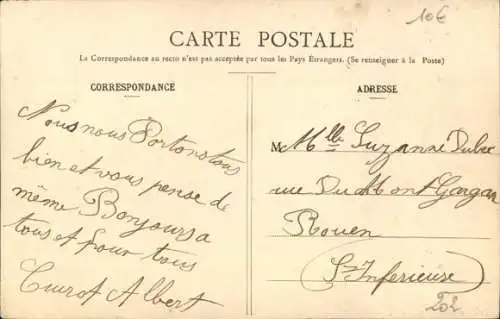 10€
CARTE POSTALE
La Correspondance au recto n'est pas acceptée par tous les Pays Étrangers. (Se renseigner à la Poste)
CORRESPONDANCE
ADRESSE
Nous nous Portons tous
bien et vous pense de
même Bonjours a
tous et pour tous
Albert
Mlle Suzanne
rue Du Mont Gargan
Rouen
(Sne Inferieuse)
202